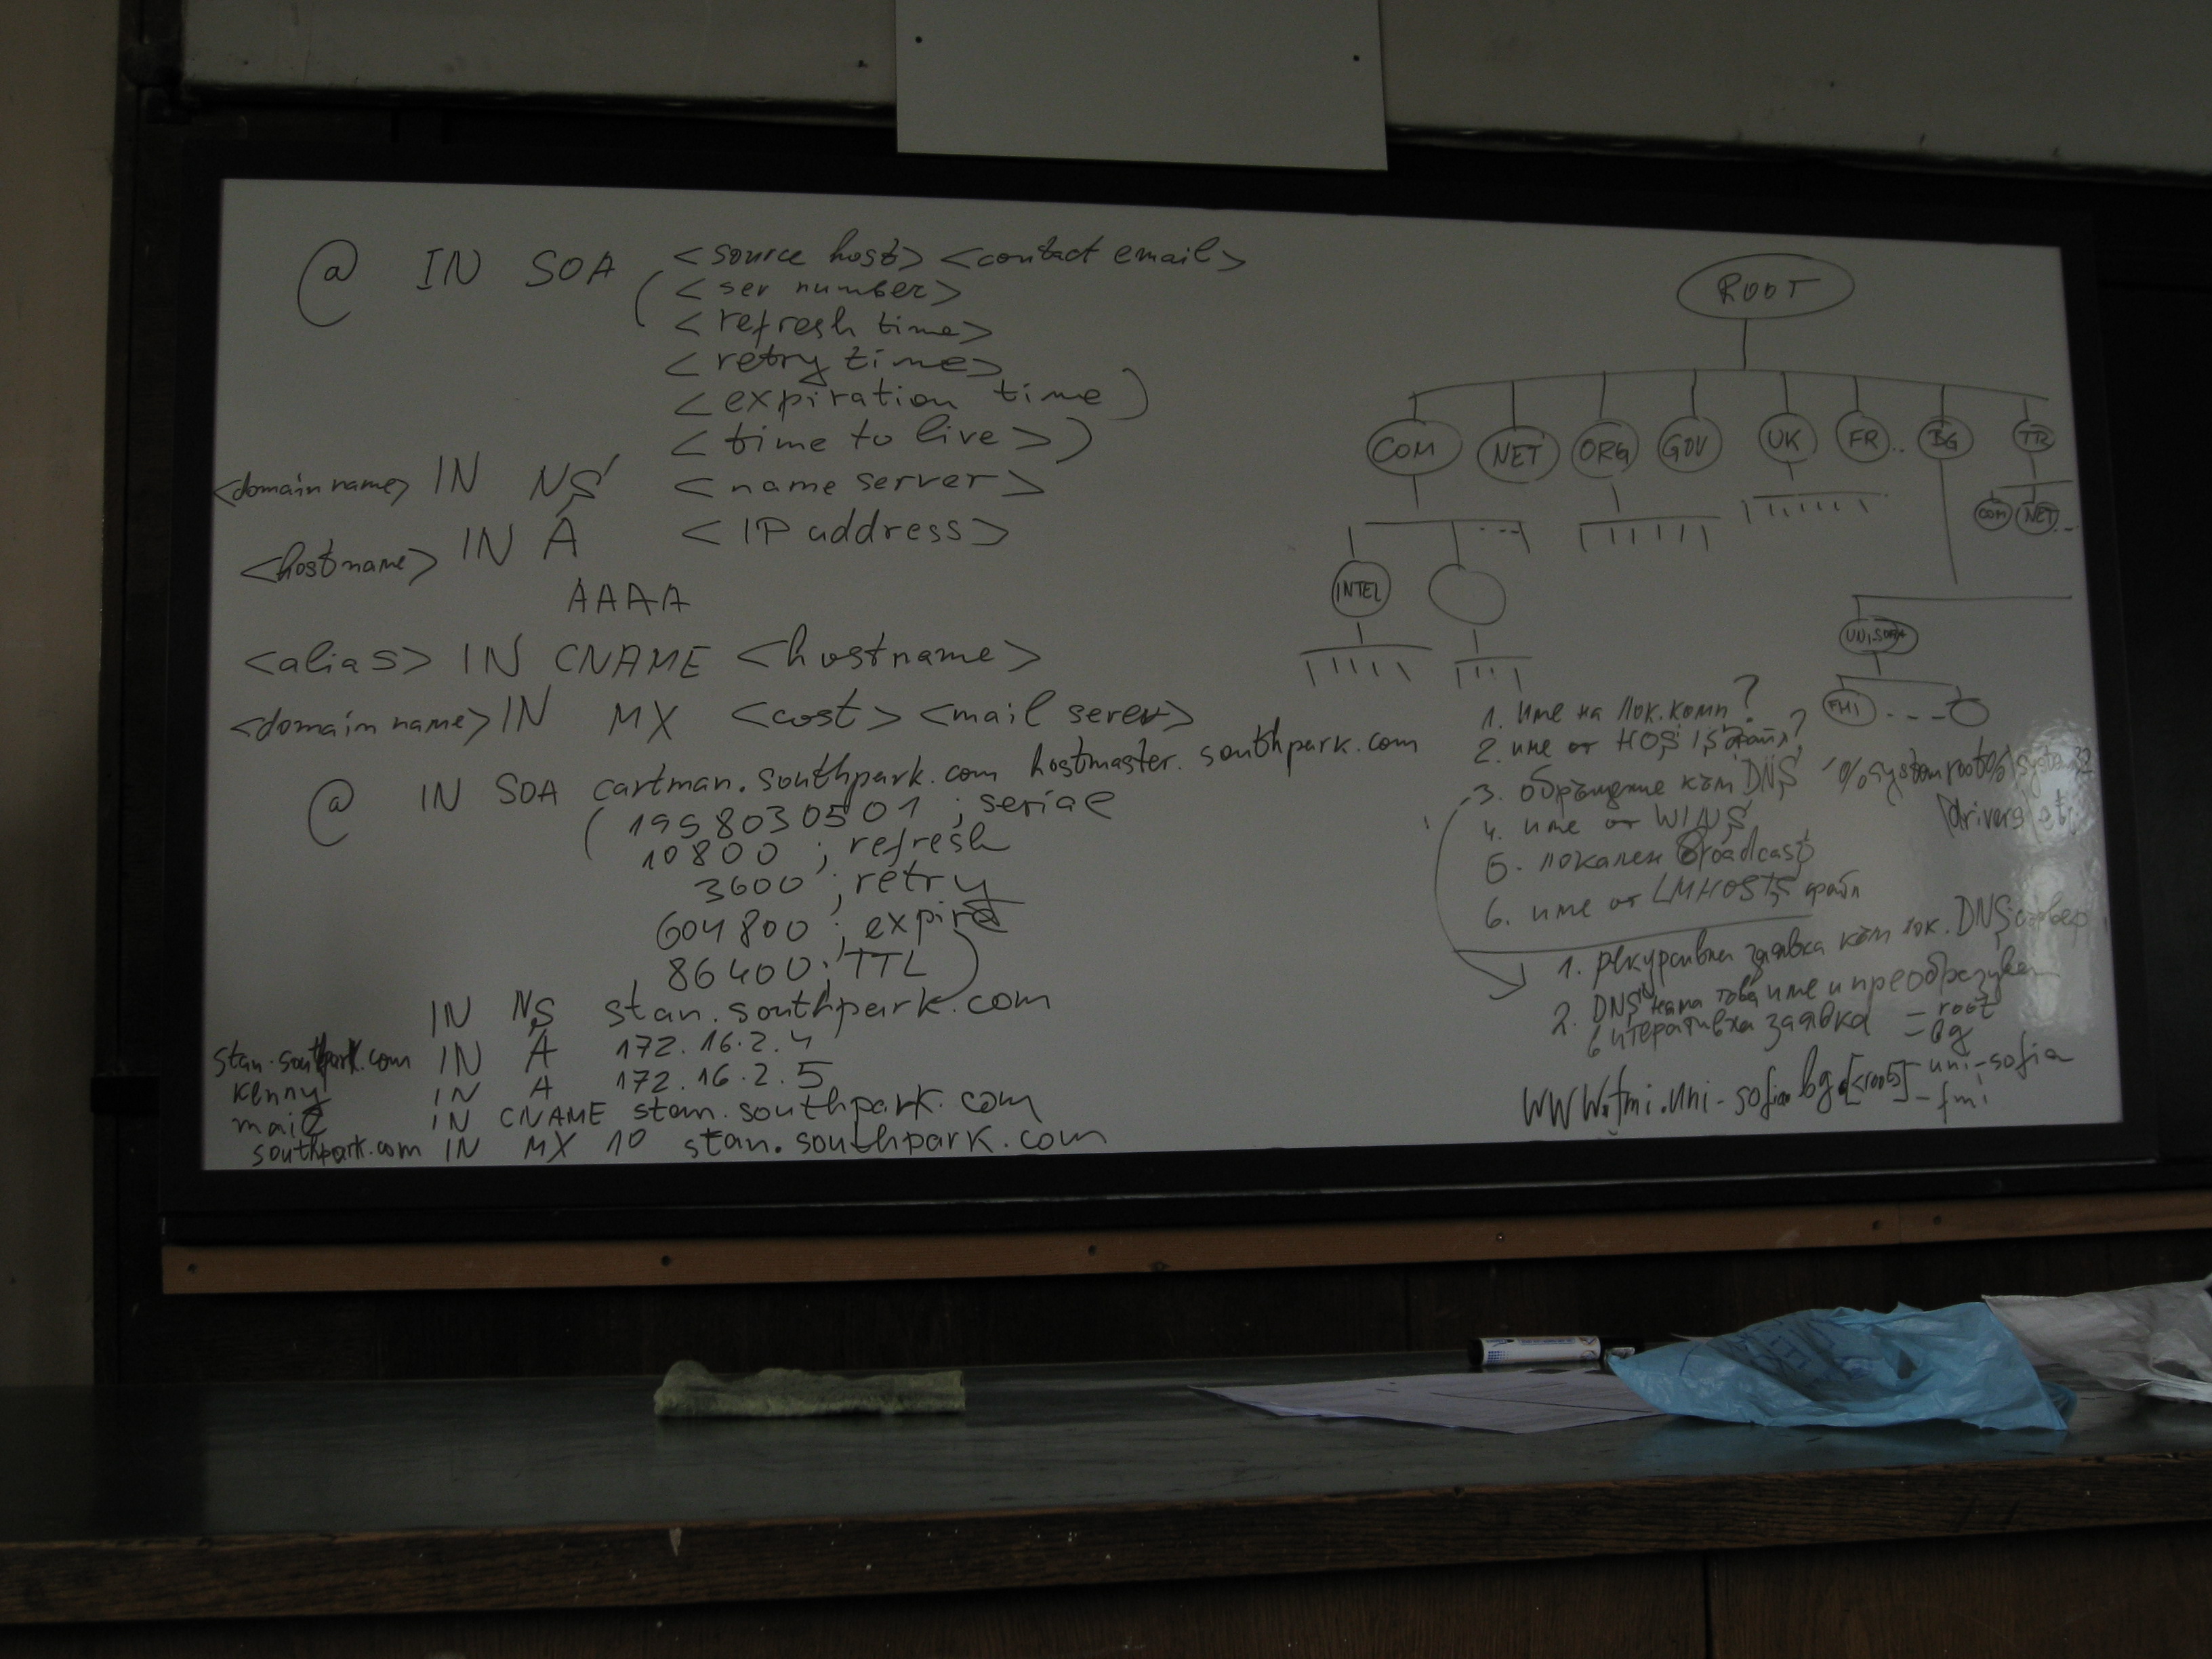 @ IN SOA <source host> <contact email>
( < ser number>
< refresh time>
< retry time>
< expiration time )
< time to live > )
<domain name> IN NS < name server >
<hostname> IN A < IP address >
AAAA
<alias> IN CNAME <hostname>
<domain name> IN MX <cost> <mail serevr>
@ IN SOA cartman.southpark.com hostmaster.southpark.com
( 1998030501 ; serial
10800 ; refresh
3600 ; retry
604800 ; expire
86400 ; TTL )
IN NS stan.southpark.com
stan.southpark.com IN A 172.16.2.4
kenny IN A 172.16.2.5
mail IN CNAME stan.southpark.com
southpark.com IN MX 10 stan.southpark.com
ROOT
COM NET ORG GOV UK FR .. BG TR
COM NET ...
INTEL
UNI-SOFIA
FMI - - -
1. име на лок. комп?
2. име от HOSTS файл?
3. обръщение към DNS %systemroot%\system32
\drivers\etc
4. име от WINS
5. локален Broadcast
6. име от LMHOSTS файл
1. рекурсивна заявка към лок. DNS сървер
2. DNS няма това име и преобразува
в итеративна заявка = root
= bg
www.fmi.uni-sofia.bg.[<root>] - uni-sofia
- fmi